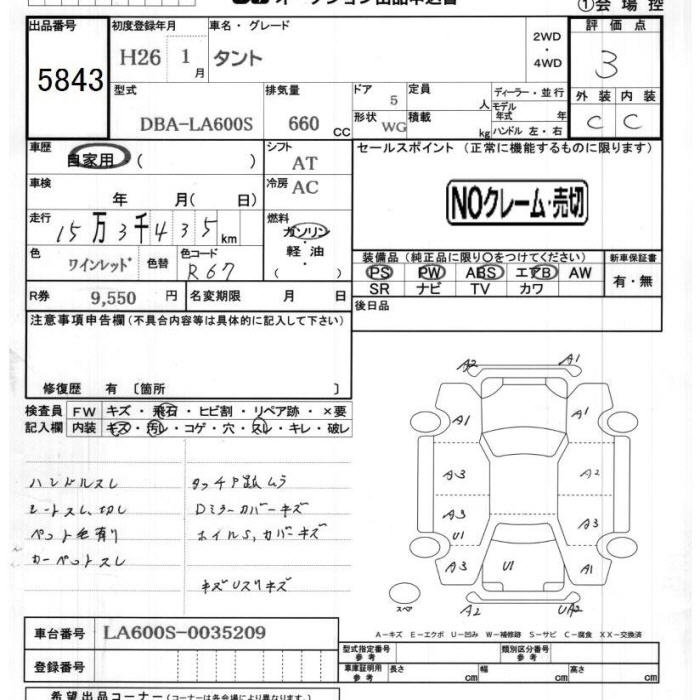 オークション出品申込書 ①会場控
出品番号 初度登録年月 車名・グレード 2WD ・ 4WD 評価点
5843 H26 1月 タント 3
型式 排気量 ドア 5 定員 人 ディーラー・並行 外装 内装
DBA-LA600S 660 CC 形状 WG 積載 kg モデル年式 年 ハンドル 左・右 C C
車歴 自家用 ( ) シフト AT セールスポイント (正常に機能するものに限ります)
車検 年 月( 日) 冷房 AC NOクレーム・売切
走行 15万3千435km 燃料 ガソリン・軽油 ( )
色 ワインレッド 色替 色コード R67 装備品 (純正品に限り〇をつけてください) 新車保証書
PS PW ABS エアB AW 有・無
SR ナビ TV カワ
R券 9,550 円 名変期限 月 日 後日品
注意事項申告欄 (不具合内容等は具体的に記入して下さい)
修復歴 有 〔箇所 〕
検査員 FW キズ・飛石・ヒビ割・リペア跡・×要
記入欄 内装 キズ・汚レ・コゲ・穴・スレ・キレ・破レ
ハンドルスレ タッチP跡ムラ
シートスレ,切レ Dミラーカバーキズ
ペット毛有り ホイルS,カバーキズ
カーペットスレ
キズUスリキズ
A2 A1
A1 A1
A3 A2
A3 U1 A3
A3 U1 A1
スペア A2 UA2
A-キズ E-エクボ U-凹み W-補修跡 S-サビ C-腐食 XX-交換済
車台番号 LA600S-0035209
登録番号
型式指定番号 参考 類別区分番号 参考
車庫証明用 参考 長さ cm 幅 cm 高さ cm
希望出品コーナー (コーナーは各会場により異なります。)